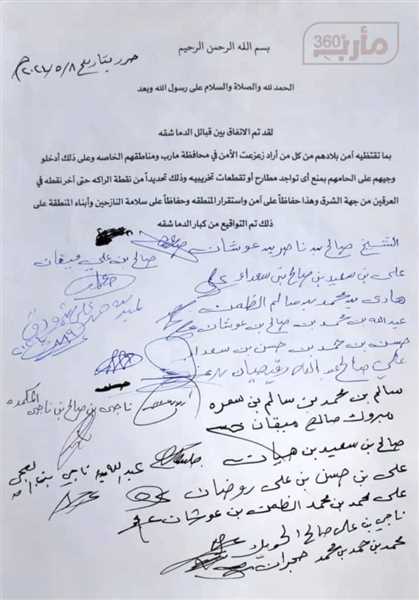 مأرب 360°
بسم الله الرحمن الرحيم
حرر بتاريخ ٢٠٢٦/٥/٨م
الحمد لله والصلاة والسلام على رسول الله وبعد
لقد تم الاتفاق بين قبائل الدماشقه
بما تقتظيه أمن بلادهم من كل من أراد زعزعت الأمن في محافظة مارب ومناطقهم الخاصه وعلى ذلك أدخلو
وجيهم على الحامهم بمنع أي تواجد مطارح أو تقطعات تخريبيه وذلك تحديداً من نقطة الراكه حتى آخر نقطه في
العرقين من جهة الشرق وهذا حفاظاً على أمن واستقرار المنطقه وحفاظاً على سلامة النازحين وأبناء المنطقة على
ذلك تم التواقيع من كبار الدماشقه
الشيخ صالح بن ناصر بن عوشان
صالح بن علي ميقان
علي بن سعيد بن صالح بن سعدان
هادي بن محمد بن سالم الظمن
عبدالله بن محمد بن صالح بن عوشان
حسن بن حمد بن حسن بن سعدان
علي صالح عبدالله
سالم بن محمد بن سالم بن سعره
ناجي بن صالح بن ناجي
مبروك صالح ميقان
صالح بن سعيد بن هيات
علي بن حسن بن علي روضان
علي محمد بن محمد الظمن بن عوشان
ناجي بن علي صالح
محمد بن حمد بن محمد